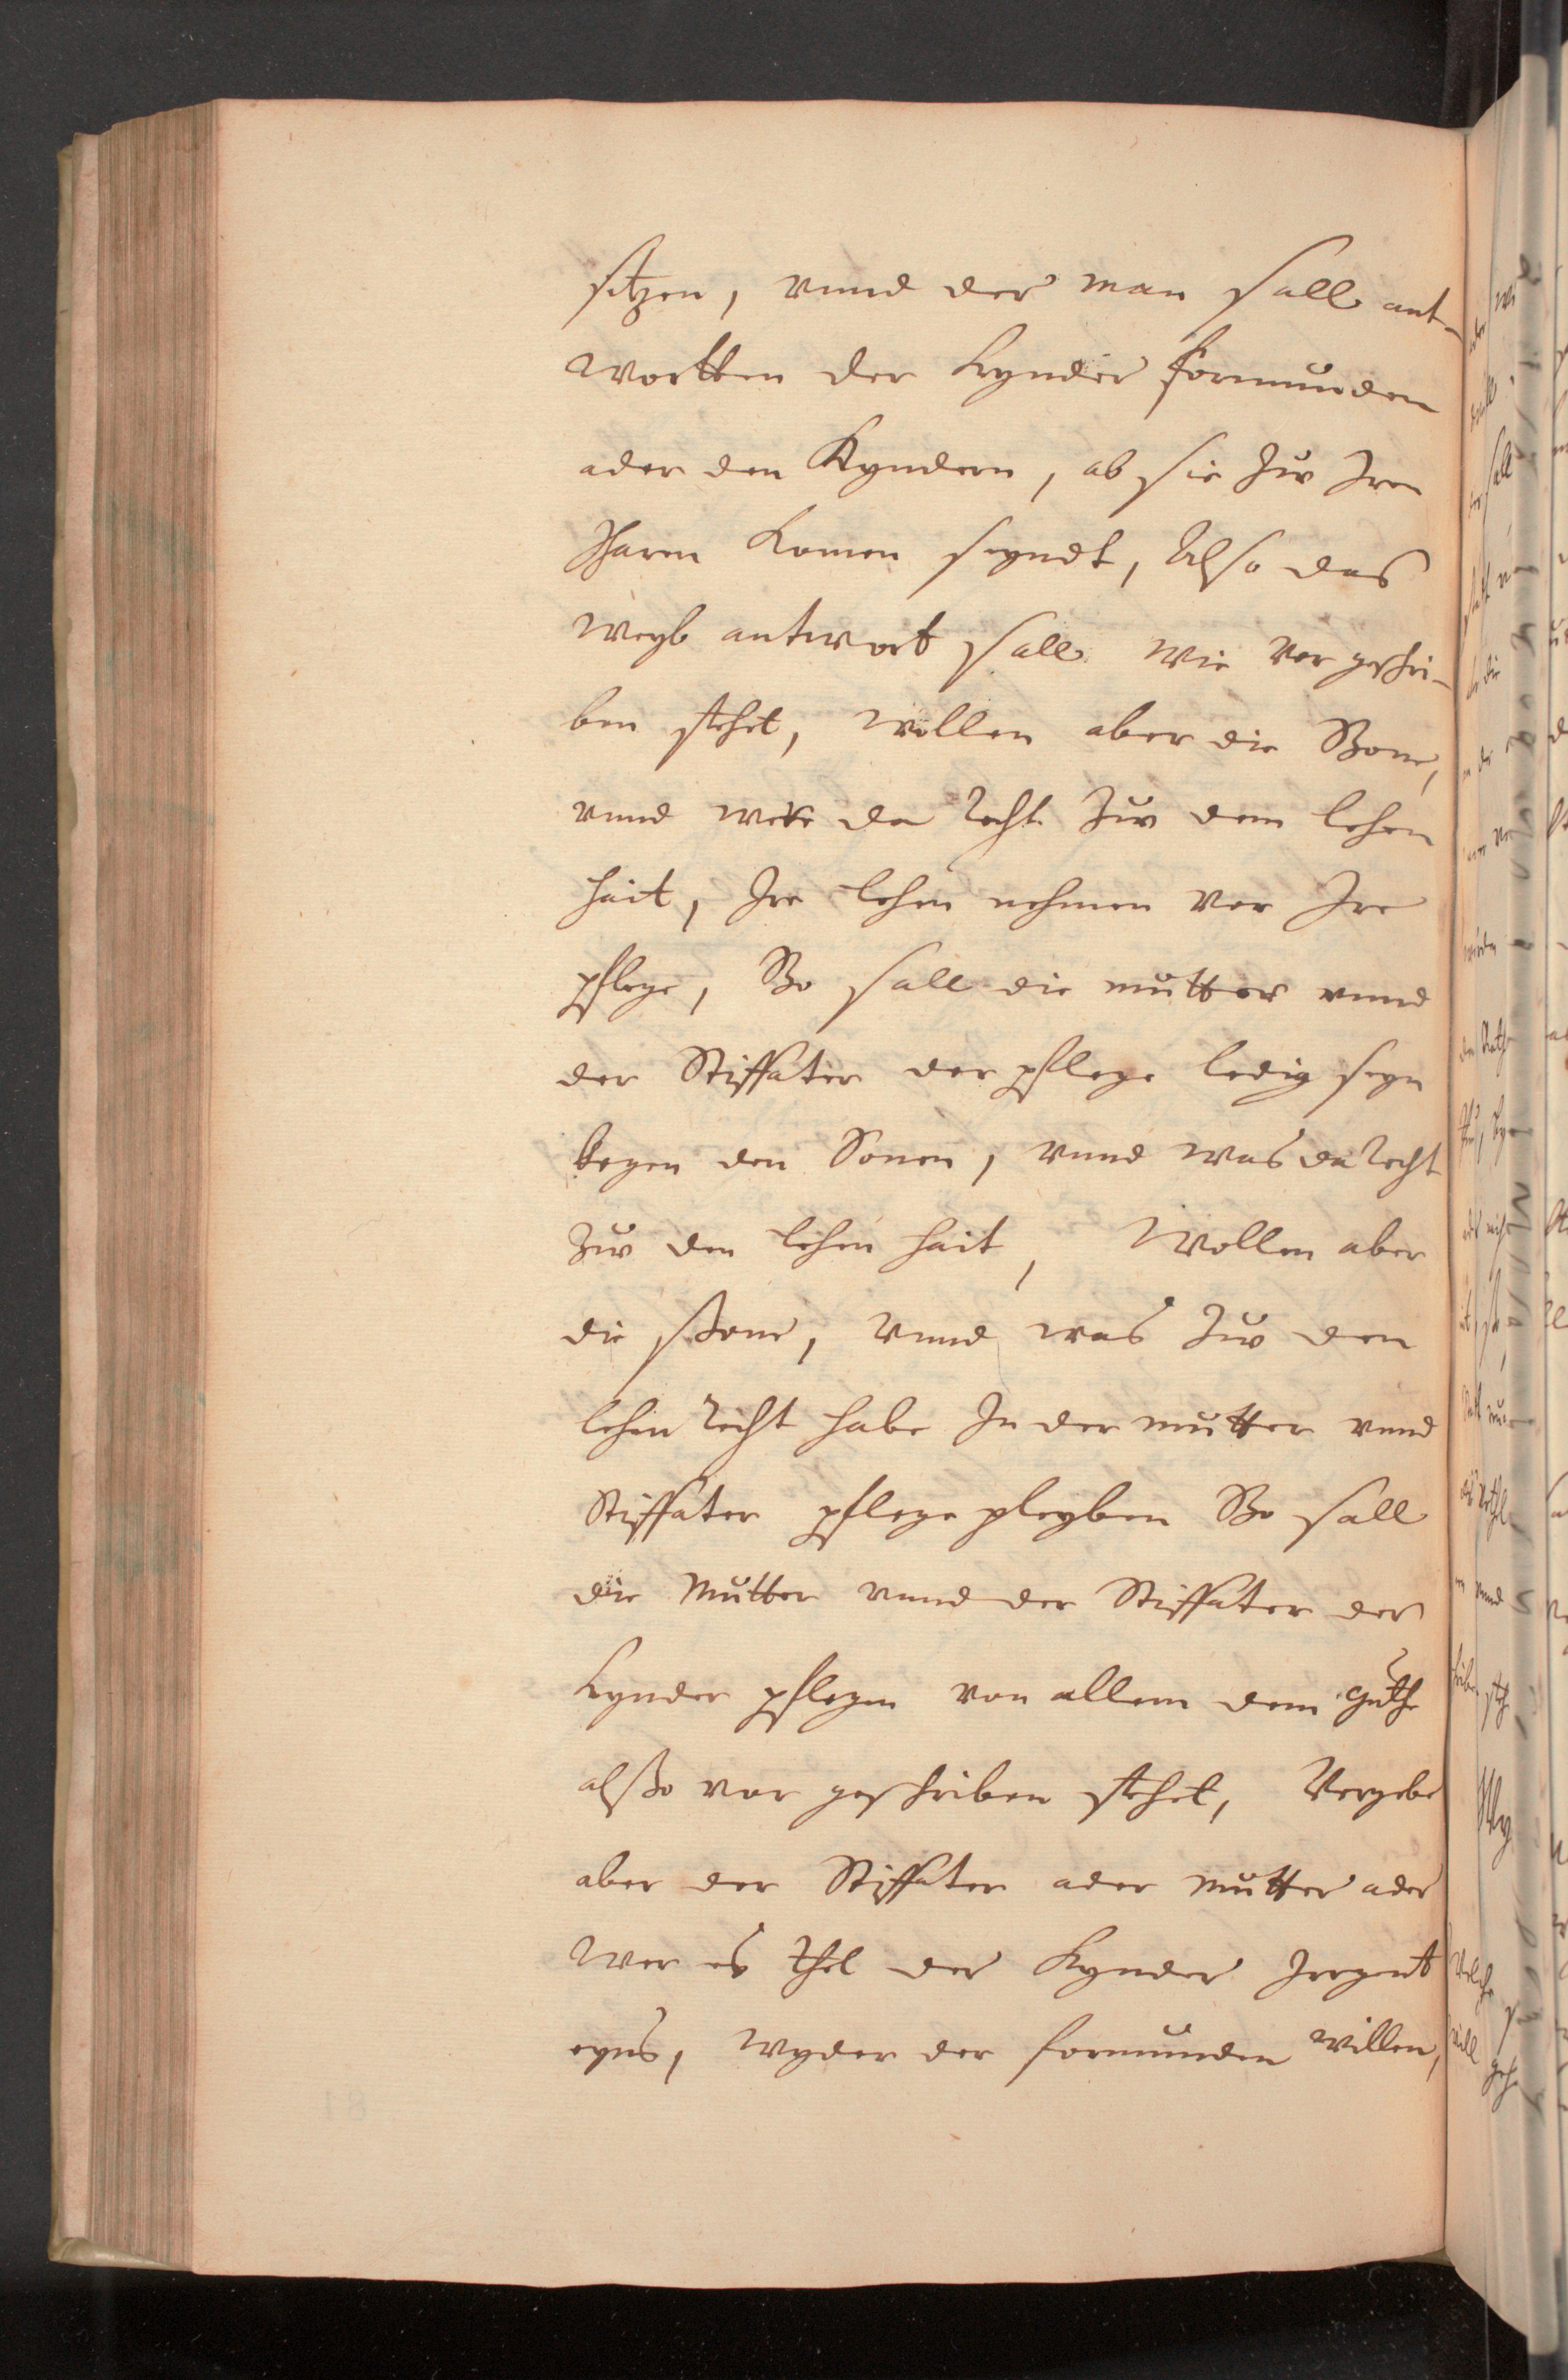 sitzen, vnnd der man sall ant-
wortten der kynder formunden
ader den Kyndern, ab sie zw Iren
Jharen komen seyndt, Also das
weyb antwort sall wie vor geschri-
ben stehet, wollen aber die Bone,
vnnd were da recht zw dem lehen
hait, Ire lehen nehmen vor Ire
pflege, So sall die mutter vnnd
der Stiffater der pflege ledig seyn
kegen den Sonen, vnnd was da recht
zw den lehen hait, Wollen aber
die ssone, vnnd was zw den
lehen recht habe In der mutter vnnd
Stiffater pflege pleyben So sall
die Mutter vnnd der Stiffater der
kynder pflegen von allem dem guthe
alsso vor geschriben stehet, Vergebe
aber der Stiffater ader mutter ader
wer es thet der Kynder Irgent
eyns, wyder der formunden willen,